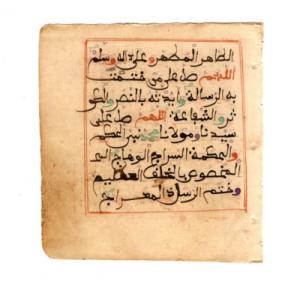 الطاهر المطهر وعلى اله وسلم
اللهم صل على من ختمت
به الرسالة وايدته بالنصر والكو
ثر والشفاعة اللهم صل على
سيدنا ومولانا محمد نبي الحكم
والحكمة السراج الوهاج
المخصوص بالخلق العظيم
وختم الرسل ذي المعراج